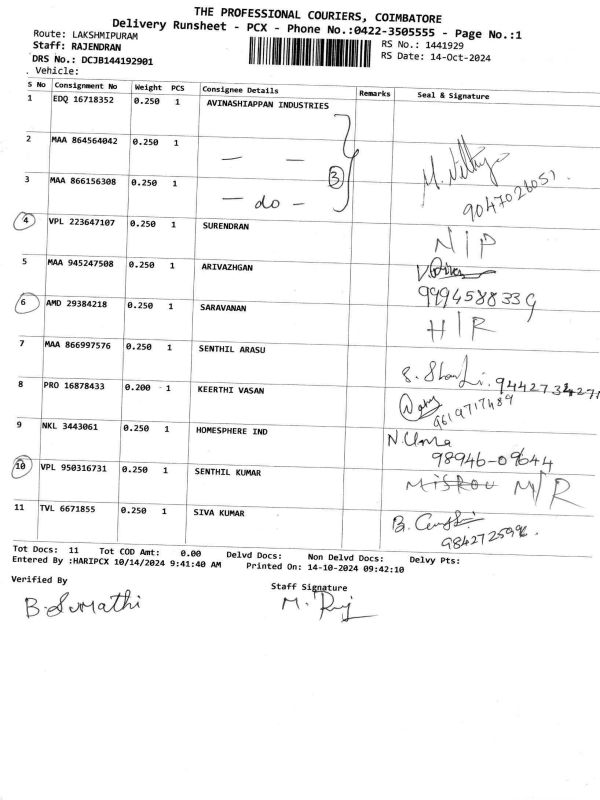 THE PROFESSIONAL COURIERS, COIMBATORE
Delivery Runsheet - PCX - Phone No.:0422-3505555 - Page No.:1
Route: LAKSHMIPURAM
RS No.: 1441929
Staff: RAJENDRAN
RS Date: 14-Oct-2024
DRS No.: DCJB144192901
Vehicle:
S No Consignment No Weight PCS Consignee Details Remarks Seal & Signature
1 EDQ 16718352 0.250 1 AVINASHIAPPAN INDUSTRIES
2 MAA 864564042 0.250 1 — —
3 MAA 866156308 0.250 1 — do — 3
9047026051.
4 VPL 223647107 0.250 1 SURENDRAN N/P
5 MAA 945247508 0.250 1 ARIVAZHGAN
9994588339
6 AMD 29384218 0.250 1 SARAVANAN H/R
7 MAA 866997576 0.250 1 SENTHIL ARASU
8 PRO 16878433 0.200 1 KEERTHI VASAN
9619717489
9 NKL 3443061 0.250 1 HOMESPHERE IND N.Uma
98946-09644
10 VPL 950316731 0.250 1 SENTHIL KUMAR M/R
11 TVL 6671855 0.250 1 SIVA KUMAR
Tot Docs: 11 Tot COD Amt: 0.00 Delvd Docs: Non Delvd Docs: Delvy Pts:
Entered By :HARIPCX 10/14/2024 9:41:40 AM Printed On: 14-10-2024 09:42:10
Verified By
Staff Signature
B. Sumathi
M. Raj